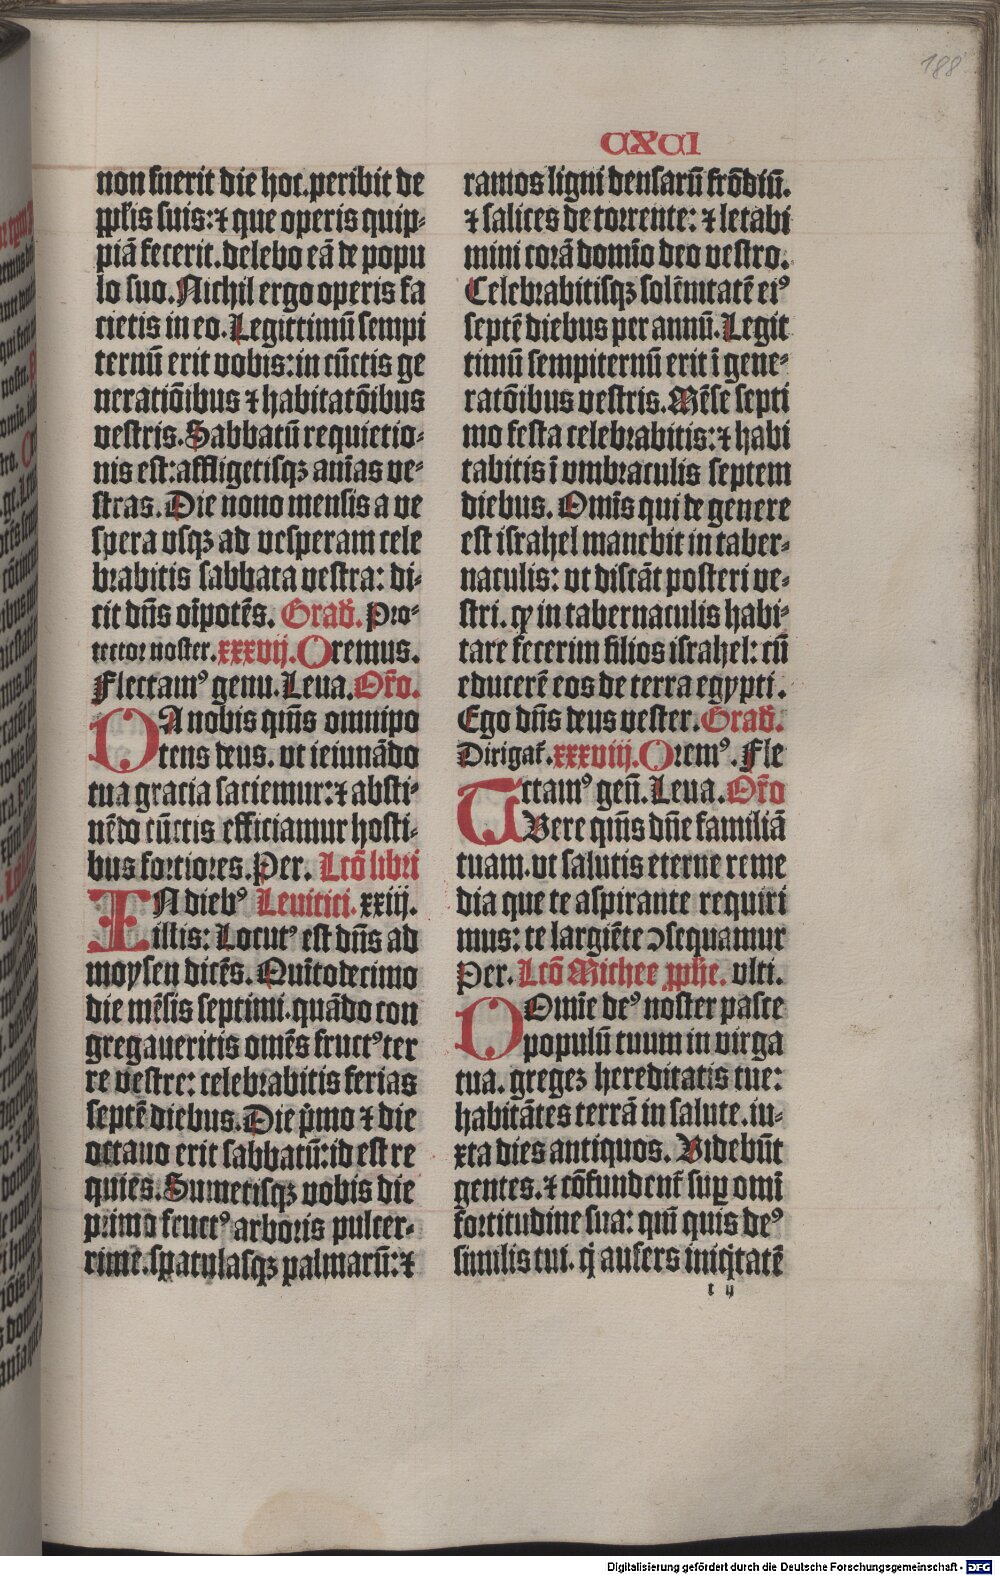 188
CXCI
non fuerit die hoc.peribit de
pp̄lis suis:⁊ que operis quip⸗
piā fecerit.delebo eā de popu
lo suo. Nichil ergo operis fa
cietis in eo. Legittimū sempi
ternū erit vobis:in cūctis ge
neratiōibus ⁊ habitatōibus
vestris. Sabbatū requietio⸗
nis est:affligetisqꝫ aīas ve⸗
stras. Die nono mensis a ve
spera vsqꝫ ad vesperam cele
brabitis sabbata vestra: di⸗
cit dn̄s oīpotēs. Grad̄. Pro⸗
tector noster. xxxvij. Oremus.
Flectamꝰ genu. Leua. Or̄o.
DA nobis qm̄s omnipo
tens deus. vt ieiunādo
tua gracia saciemur:⁊ absti⸗
nēdo cūctis efficiamur hosti⸗
bus fortiores. Per. Lcō libri
IN diebꝰ Leuitici. xxiij.
illis: Locutꝰ est dn̄s ad
moysen dicēs. Quītodecimo
die mēsis septimi.quādo con
gregaueritis omēs fructꝰ ter
re vestre: celebrabitis ferias
septē diebus. Die p̄mo ⁊ die
octauo erit sabbatū:id est re
quies. Sumetisqꝫ vobis die
primo fructꝰ arboris pulcer⸗
rime.spatulasqꝫ palmarū:⁊
ramos ligni densarū frōdiū.
⁊ salices de torrente: ⁊ letabi
mini corā domīo deo vestro.
Celebrabitisqꝫ solēnitatē eiꝰ
septē diebus per annū. Legit
timū sempiternū erit ī gene⸗
ratōibus vestris. Mēse septi
mo festa celebrabitis:⁊ habi
tabitis ī vmbraculis septem
diebus. Omīs qui de genere
est israhel manebit in taber⸗
naculis: vt discāt posteri ve⸗
stri. ꝙ in tabernaculis habi⸗
tare fecerim filios israhel: cū
educerē eos de terra egypti.
Ego dn̄s deus vester. Grad̄.
Dirigat̄. xxxviij. Oremꝰ. Fle
ctamꝰ geū. Leua. Or̄o
TVere qm̄s dn̄e familiā
tuam.vt salutis eterne reme
dia que te aspirante requiri
mus: te largiēte ↄsequamur
Per. Lcō Michee pp̄he. vlti.
DOmīe deꝰ noster pasce
populū tuum in virga
tua. gregeꝫ hereditatis tue:
habitātes terrā in salute.iu⸗
xta dies antiquos. Videbūt
gentes.⁊ cōfundent̄ suꝑ omī
fortitudine sua: qm̄ quis deꝰ
similis tui. q̇ aufers iniq̇tatē
t ij
Digitalisierung gefördert durch die Deutsche Forschungsgemeinschaft - DFG